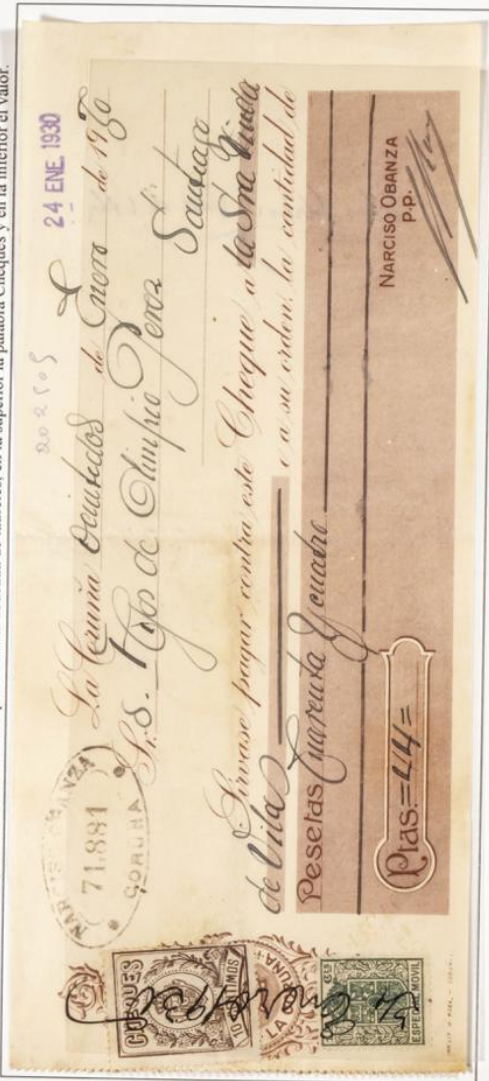 en la superior la palabra Cheques y en la inferior el valor.
202505
24 ENE. 1930
La Coruña veintidos de Enero de 1930
Srs. Hijos de Olimpio Perez Santiago
Sírvase pagar contra este Cheque a la Sra Viuda
de Vila o a su orden, la cantidad de
Pesetas Cuarenta y cuatro
Ptas.=44=
NARCISO OBANZA
P.P.
NARCISO OBANZA
71.881
CORUÑA
CHEQUES
10 CENTIMOS
LA CORUÑA
Enero 1930
ESPECIAL MOVIL